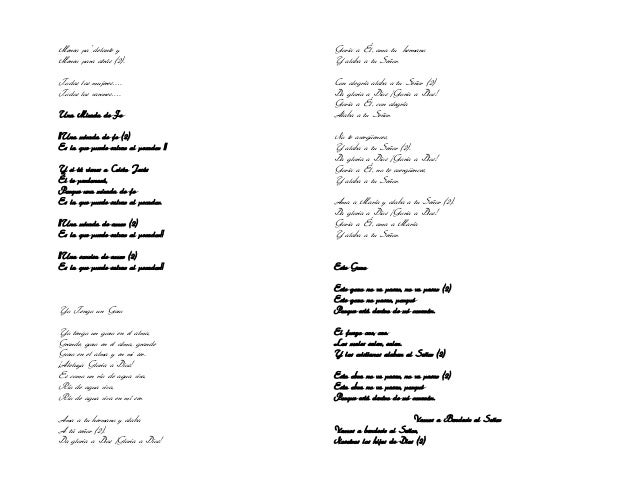 Mamá pa' delante y
Mamá para atrás (2).
Todas las mujeres....
Todos los varones....
Una Mirada de Fe
//Una mirada de fe (2)
Es la que puede salvar al pecador //
Y si tú vienes a Cristo Jesús
Él te perdonará,
Porque una mirada de fe
Es la que puede salvar al pecador.
//Una mirada de amor (2)
Es la que puede salvar al pecador//
//Una sonrisa de amor (2)
Es la que puede salvar al pecador//
Yo Tengo un Gozo
Yo tengo un gozo en el alma,
Grande, gozo en el alma, grande
Gozo en el alma y en mi ser.
¡Aleluya Gloria a Dios!
Es como un río de agua viva,
Río de agua viva,
Río de agua viva en mi ser.
Ama a tu hermano y alaba
A tú señor (2).
Da gloria a Dios ¡Gloria a Dios!
Gloria a Él, ama tu hermano
Y alaba a tu Señor.
Con alegría alaba a tu Señor (2)
Da gloria a Dios ¡Gloria a Dios!
Gloria a Él, con alegría
Alaba a tu Señor.
No te avergüences,
Y alaba a tu Señor (2).
Da gloria a Dios ¡Gloria a Dios!
Gloria a Él, no te avergüences,
Y alaba a tu Señor.
Ama a María y alaba a tu Señor (2).
Da gloria a Dios ¡Gloria a Dios!
Gloria a Él, ama a María
Y alaba a tu Señor.
Este Gozo
Este gozo no va pasar, no va pasar (2)
Este gozo no pasar, porqué
Porque está dentro de mi corazón.
El fuego cae, cae.
Los males salen, salen.
Y los cristianos alaban al Señor (2)
Esta alma no va pasar, no va pasar (2)
Esta alma no va pasar, porqué
Porque está dentro de mi corazón.
Vamos a Bendecir al Señor
Vamos a bendecir al Señor,
Nosotros los hijos de Dios (2)